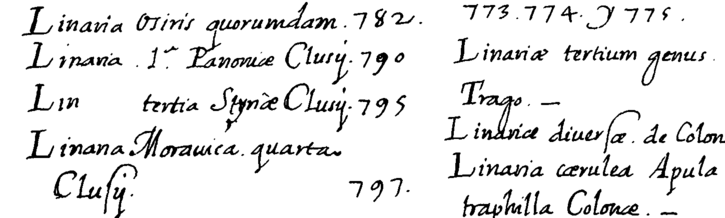 Linaria Osiris quorumdam. 782.
Linaria. 1.ª Panoniæ Clusÿ. 790
Lin tertia Styriæ Clusÿ. 795
Linaria Moravica. quarta
Clusÿ. 797.
773. 774. y 775.
Linariæ tertium genus.
Trago. —
Linariæ diversæ. de Colon
Linaria cærulea Apula
traphilla Colonæ. —